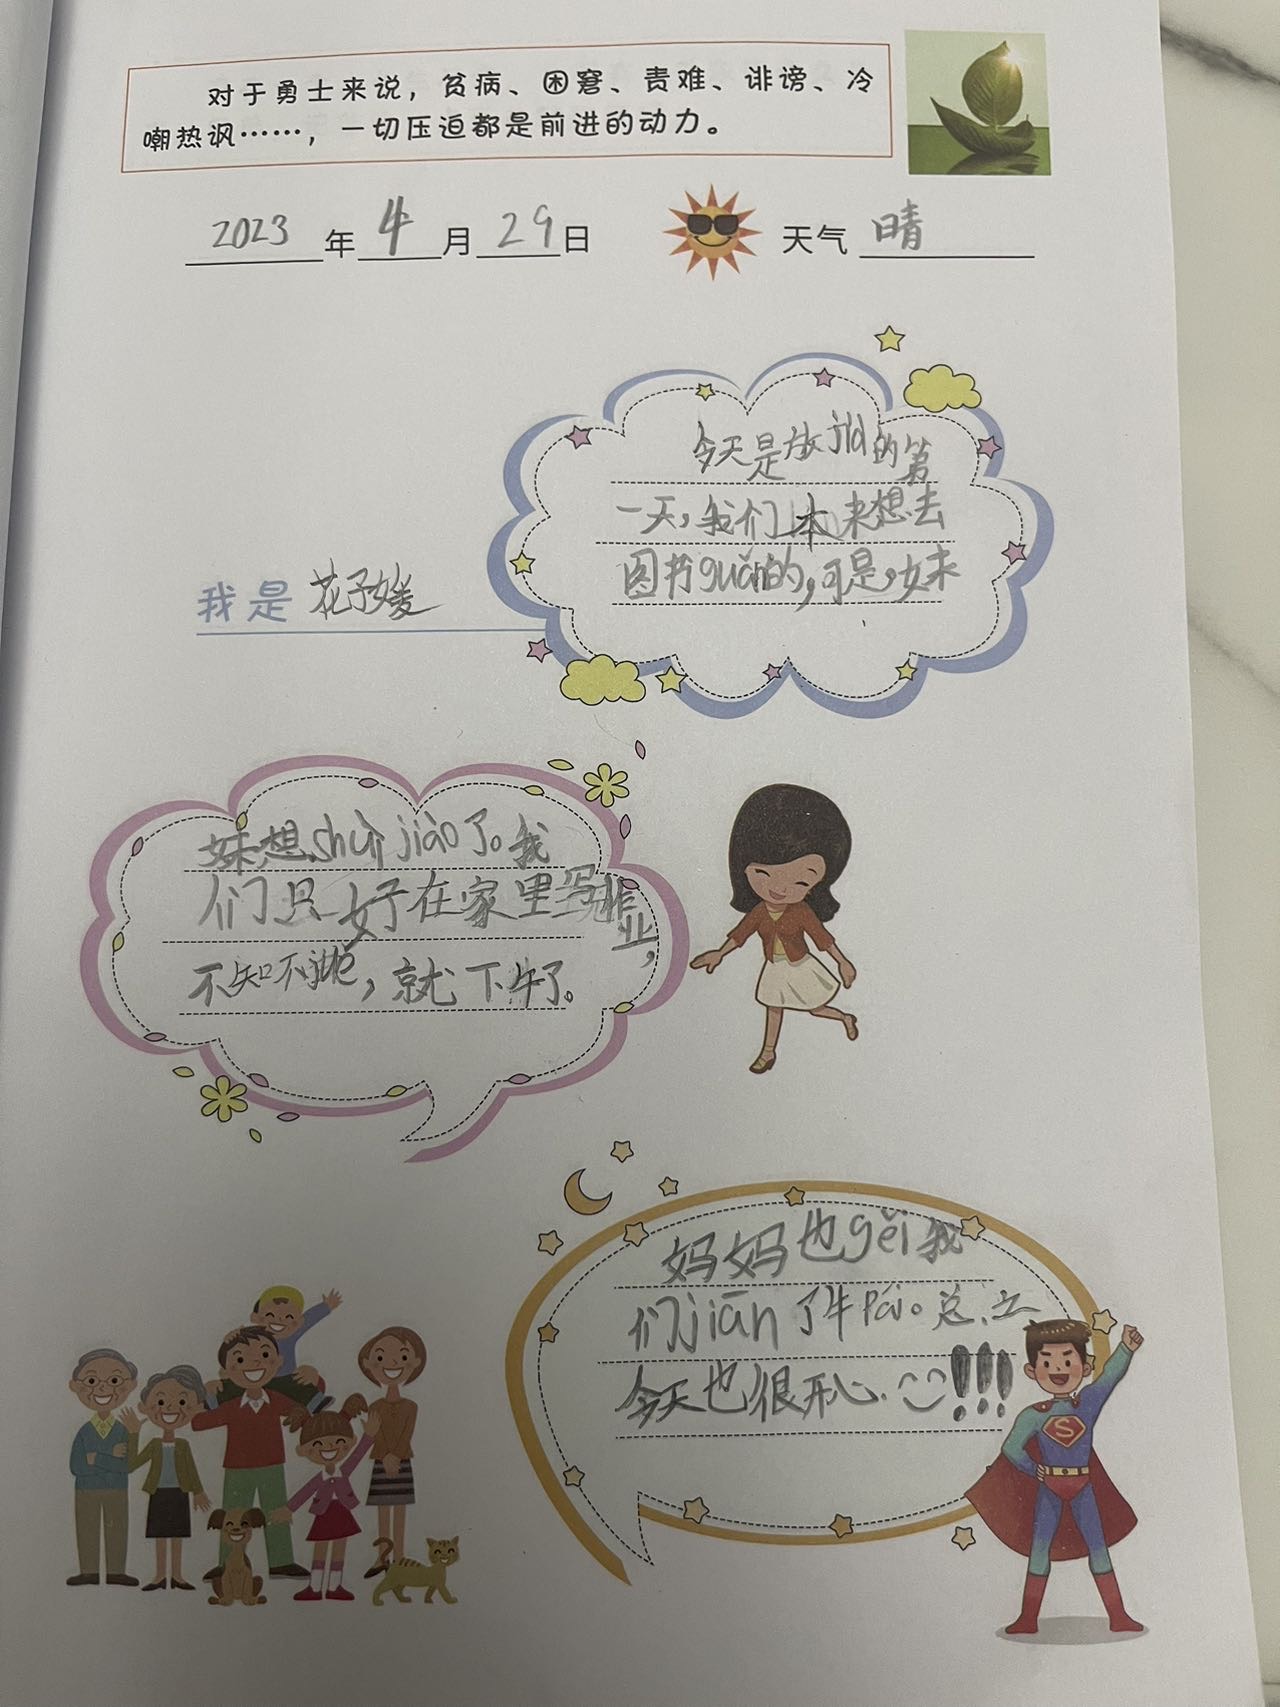 对于勇士来说，贫病、困窘、责难、诽谤、冷
嘲热讽……，一切压迫都是前进的动力。
2023年4月29日 天气 晴
今天是放jià的第
一天，我们本来想去
图书guǎn的，可是，妹
我是 花子媛
妹想shuì jiào了。我
们只好在家里写作业，
不知不jué，就下午了。
妈妈也gěi我
们jiān了牛pái。总之
今天也很开心.!!!
S